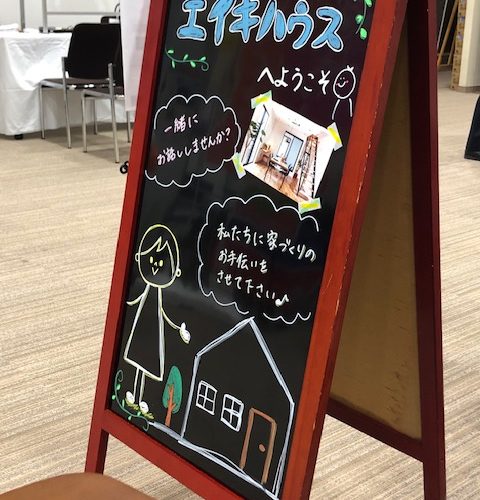 エイキハウス
へようこそ
一緒に
お話いしませんか?
私たちに家づくりの
お手伝いを
させて下さい♪